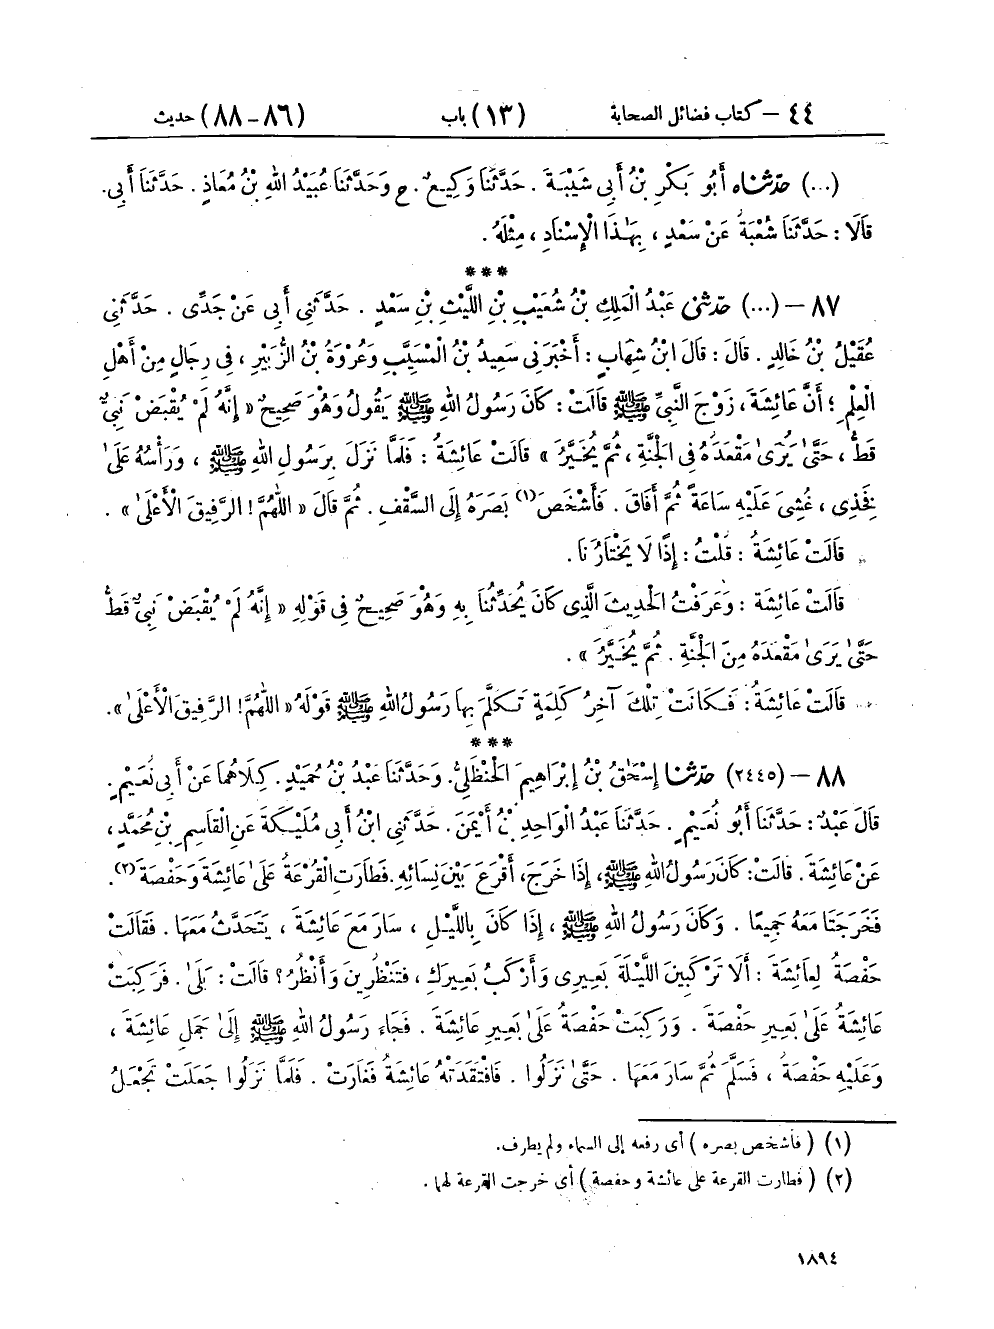 ٤٤ – كتاب فضائل الصحابة (١٣) باب (٨٦–٨٨) حديث
(...) حَدَّثَنَاه أَبُو بَكْرِ بْنُ أَبِى شَيْبَةَ . حَدَّثَنَا وَكِيعٌ . ح وَحَدَّثَنَا عُبَيْدُ اللهِ بْنُ مُعَاذٍ . حَدَّثَنَا أَبِى .
قَالَا : حَدَّثَنَا شُعْبَةُ عَنْ سَعْدٍ ، بِهَـٰذَا الْإِسْنَادِ ، مِثْلَهُ .
***
٨٧ – (...) حَدَّثَنِى عَبْدُ الْمَلِكِ بْنُ شُعَيْبِ بْنِ اللَّيْثِ بْنِ سَعْدٍ . حَدَّثَنِى أَبِى عَنْ جَدِّى . حَدَّثَنِى
عُقَيْلُ بْنُ خَالِدٍ . قَالَ : قَالَ ابْنُ شِهَابٍ : أَخْبَرَنِى سَعِيدُ بْنُ الْمُسَيَّبِ وَعُرْوَةُ بْنُ الزُّبَيْرِ ، فِى رِجَالٍ مِنْ أَهْلِ
الْعِلْمِ ؛ أَنَّ عَائِشَةَ ، زَوْجَ النَّبِىِّ ﷺ قَالَتْ : كَانَ رَسُولُ اللهِ ﷺ يَقُولُ وَهُوَ صَحِيحٌ « إِنَّهُ لَمْ يُقْبَضْ نَبِىٌّ
قَطُّ ، حَتَّىٰ يُرَىٰ مَقْعَدَهُ فِى الْجَنَّةِ ، ثُمَّ يُخَيَّرُ » قَالَتْ عَائِشَةُ : فَلَمَّا نَزَلَ بِرَسُولِ اللهِ ﷺ ، وَرَأْسُهُ عَلَىٰ
فَخِذِى ، غُشِىَ عَلَيْهِ سَاعَةً ثُمَّ أَفَاقَ . فَأَشْخَصَ (١) بَصَرَهُ إِلَى السَّقْفِ . ثُمَّ قَالَ « اللَّهُمَّ ! الرَّفِيقَ الْأَعْلَىٰ » .
قَالَتْ عَائِشَةُ : قُلْتُ : إِذًا لَا يَخْتَارُنَا .
قَالَتْ عَائِشَةُ : وَعَرَفْتُ الْحَدِيثَ الَّذِى كَانَ يُحَدِّثُنَا بِهِ وَهُوَ صَحِيحٌ فِى قَوْلِهِ « إِنَّهُ لَمْ يُقْبَضْ نَبِىٌّ قَطُّ
حَتَّىٰ يَرَىٰ مَقْعَدَهُ مِنَ الْجَنَّةِ . ثُمَّ يُخَيَّرُ » .
قَالَتْ عَائِشَةُ : فَكَانَتْ تِلْكَ آخِرُ كَلِمَةٍ تَكَلَّمَ بِهَا رَسُولُ اللهِ ﷺ قَوْلَهُ « اللَّهُمَّ ! الرَّفِيقَ الْأَعْلَىٰ » .
***
٨٨ – (٢٤٤٥) حَدَّثَنَا إِسْحَٰقُ بْنُ إِبْرَاهِيمَ الْحَنْظَلِىُّ . وَحَدَّثَنَا عَبْدُ بْنُ حُمَيْدٍ . كِلَاهُمَا عَنْ أَبِى نُعَيْمٍ .
قَالَ عَبْدٌ : حَدَّثَنَا أَبُو نُعَيْمٍ . حَدَّثَنَا عَبْدُ الْوَاحِدِ بْنُ أَيْمَنَ . حَدَّثَنِى ابْنُ أَبِى مُلَيْكَةَ عَنِ الْقَاسِمِ بْنِ مُحَمَّدٍ ،
عَنْ عَائِشَةَ . قَالَتْ : كَانَ رَسُولُ اللهِ ﷺ ، إِذَا خَرَجَ ، أَقْرَعَ بَيْنَ نِسَائِهِ . فَطَارَتِ الْقُرْعَةُ عَلَىٰ عَائِشَةَ وَحَفْصَةَ (٢) .
فَخَرَجَتَا مَعَهُ جَمِيعًا . وَكَانَ رَسُولُ اللهِ ﷺ ، إِذَا كَانَ بِاللَّيْلِ ، سَارَ مَعَ عَائِشَةَ ، يَتَحَدَّثُ مَعَهَا . فَقَالَتْ
حَفْصَةُ لِعَائِشَةَ : أَلَا تَرْكَبِينَ اللَّيْلَةَ بَعِيرِى وَأَرْكَبُ بَعِيرَكِ ، فَتَنْظُرِينَ وَأَنْظُرُ ؟ قَالَتْ : بَلَىٰ . فَرَكِبَتْ
عَائِشَةُ عَلَىٰ بَعِيرِ حَفْصَةَ . وَرَكِبَتْ حَفْصَةُ عَلَىٰ بَعِيرِ عَائِشَةَ . فَجَاءَ رَسُولُ اللهِ ﷺ إِلَىٰ جَمَلِ عَائِشَةَ ،
وَعَلَيْهِ حَفْصَةُ ، فَسَلَّمَ ثُمَّ سَارَ مَعَهَا . حَتَّىٰ نَزَلُوا . فَافْتَقَدَتْهُ عَائِشَةُ فَغَارَتْ . فَلَمَّا نَزَلُوا جَعَلَتْ تَجْعَلُ
(١) ( فأشخص بصره ) أى رفعه إلى السماء ولم يطرف .
(٢) ( فطارت القرعة على عائشة وحفصة ) أى خرجت القرعة لهما .
١٨٩٤